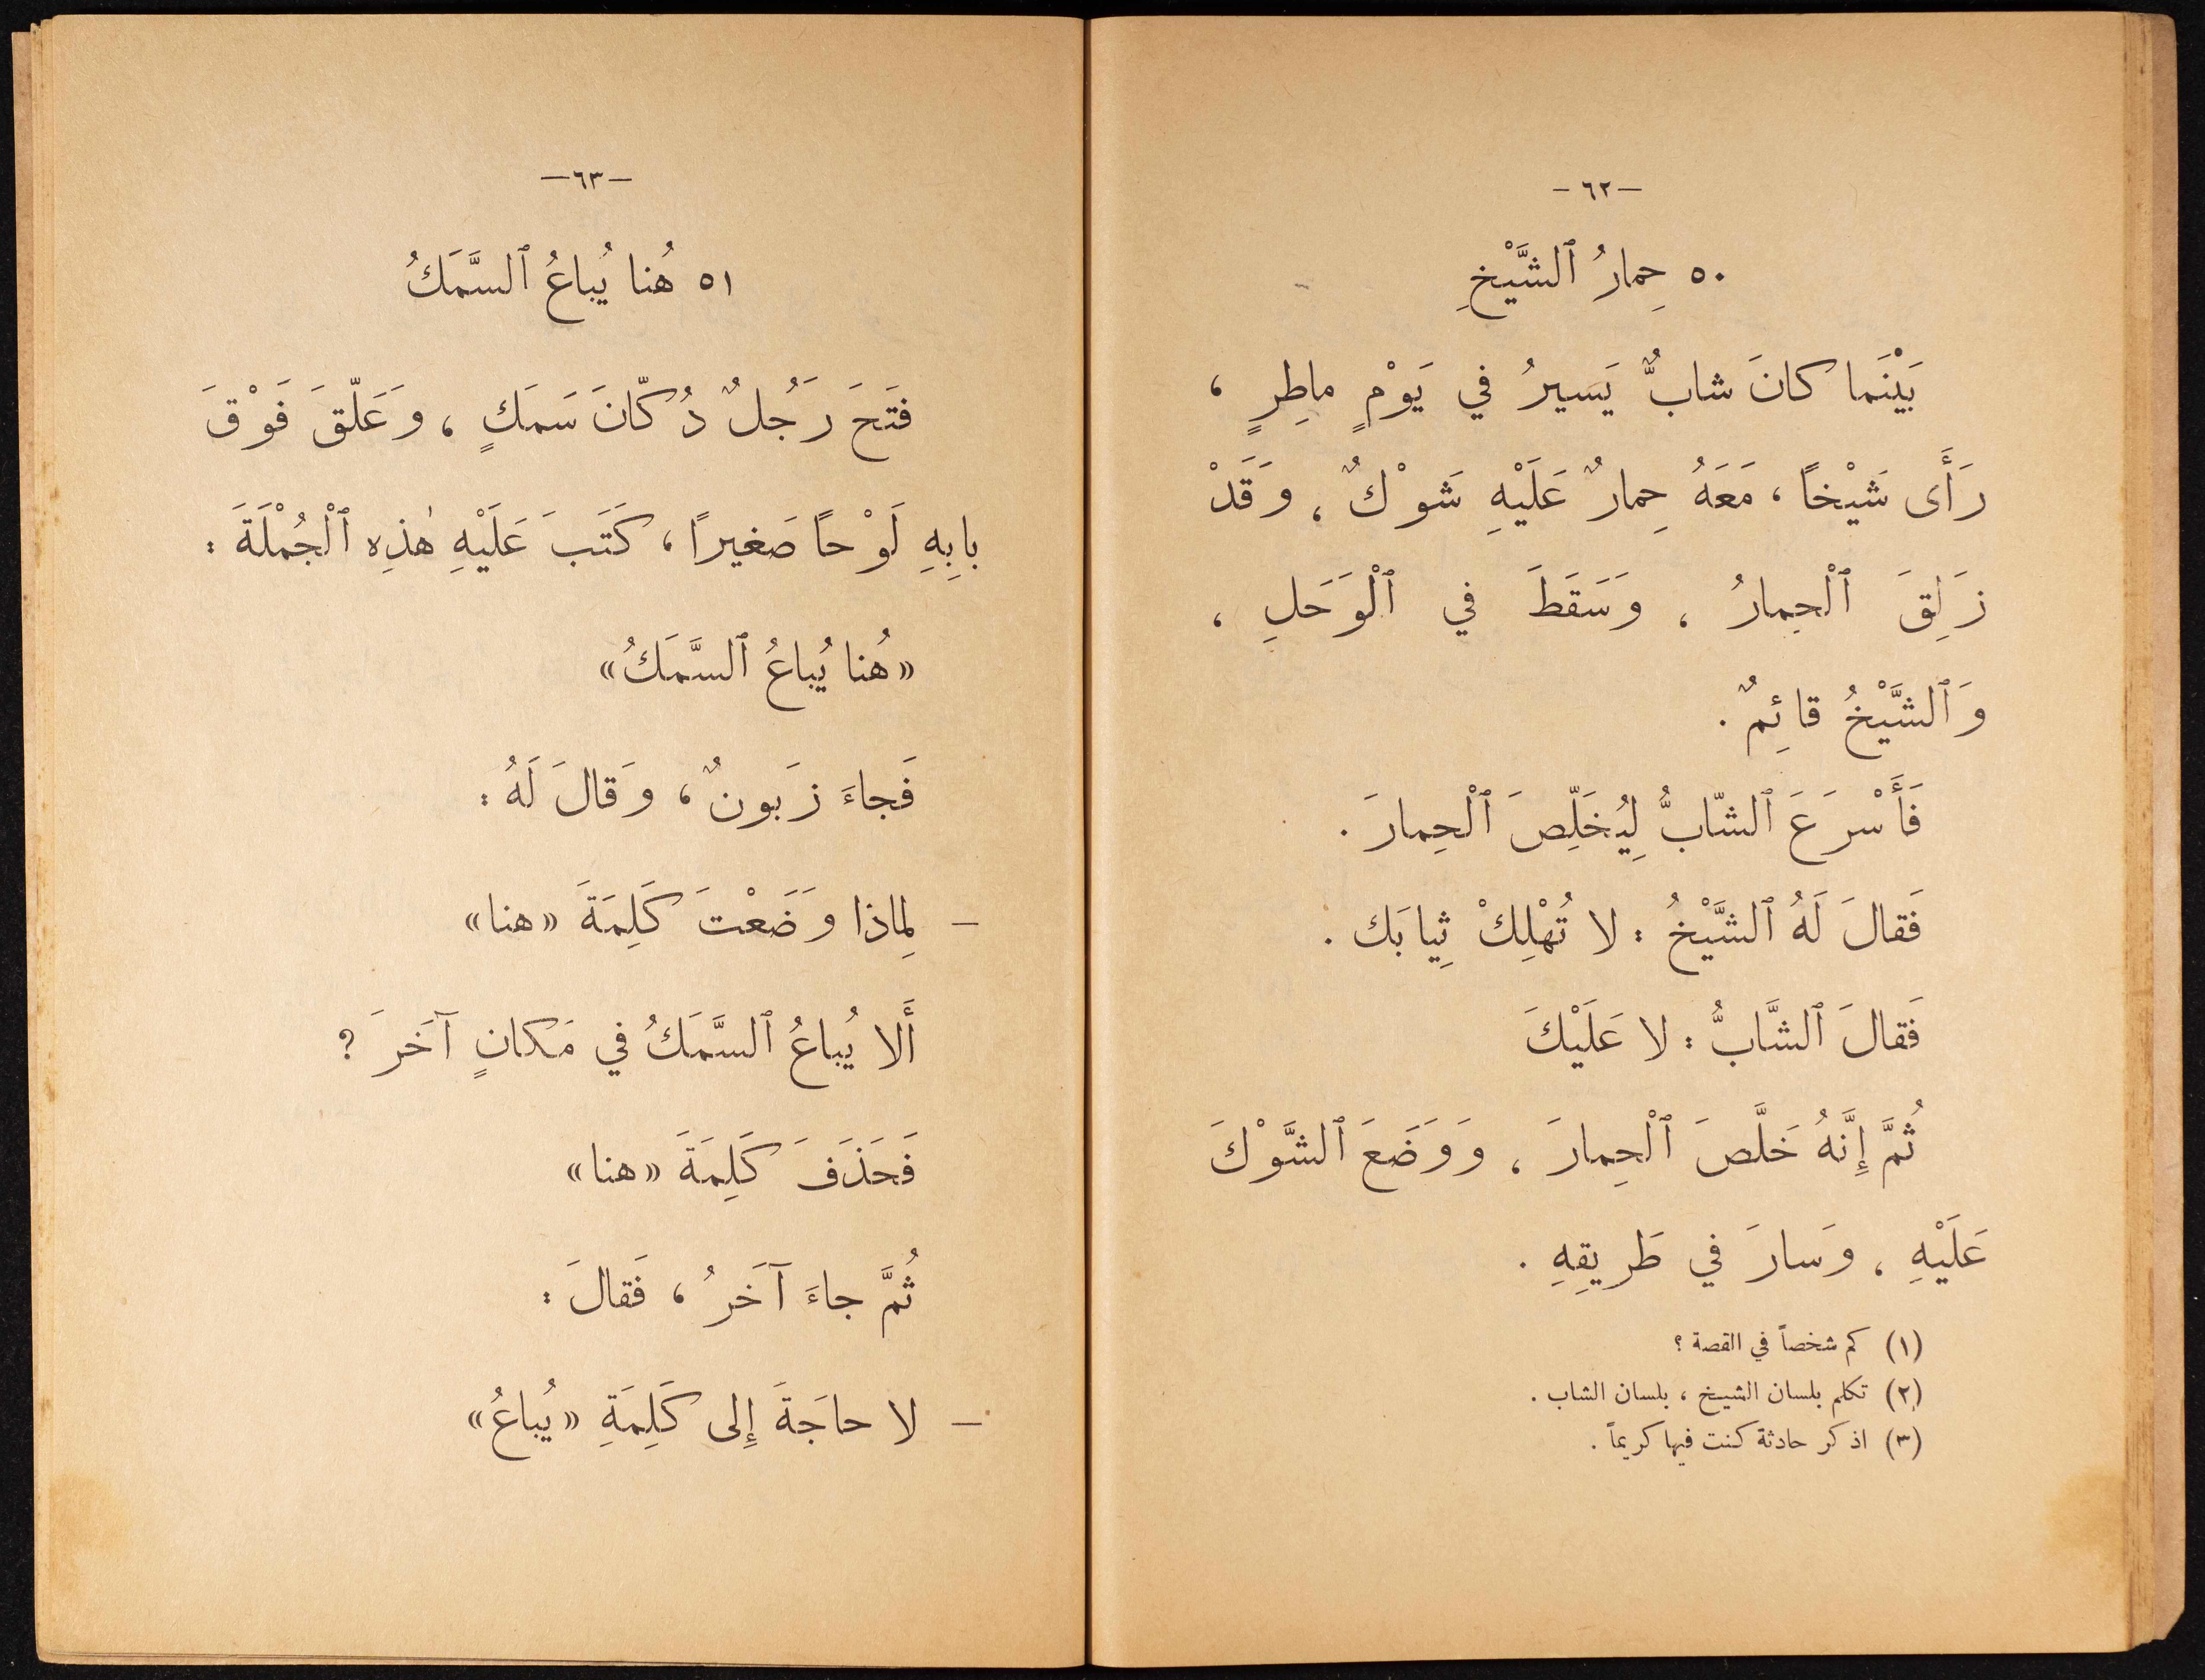 —٦٢—
٥٠ حِمارُ ٱلشَّيْخِ
بَيْنَما كانَ شابٌّ يَسَيرُ في يَوْمٍ ماطِرٍ ،
رَأَى شَيْخاً ، مَعَهُ حِمارٌ عَلَيْهِ شَوْكٌ ، وَقَدْ
زَلِقَ ٱلْحِمارُ ، وَسَقَطَ في ٱلْوَحَلِ ،
وَٱلشَّيْخُ قائِمٌ .
فَأَسْرَعَ ٱلشّابُّ لِيُخَلِّصَ ٱلْحِمارَ .
فَقالَ لَهُ ٱلشَّيْخُ : لا تُهْلِكْ ثِيابَك .
فَقالَ ٱلشَّابُّ : لا عَلَيْكَ
ثُمَّ إِنَّهُ خَلَّصَ ٱلْحِمارَ ، وَوَضَعَ ٱلشَّوْكَ
عَلَيْهِ ، وَسارَ في طَريقِهِ .
(١) كم شخصاً في القصة ؟
(٢) تكلم بلسان الشيخ ، بلسان الشاب .
(٣) اذكر حادثة كنت فيها كريماً .
—٦٣—
٥١ هُنا يُباعُ ٱلسَّمَكُ
فتَحَ رَجُلٌ دُكّانَ سَمَكٍ ، وَعَلّقَ فَوْقَ
بابِهِ لَوْحاً صَغيرًا ، كَتَبَ عَلَيْهِ هٰذِه ٱلْجُمْلَةَ :
«هُنا يُباعُ ٱلسَّمَكُ»
فَجاءَ زَبونٌ ، وَقالَ لَهُ :
— لِماذا وَضَعْتَ كَلِمَةَ «هنا»
أَلا يُباعُ ٱلسَّمَكُ في مَكانٍ آخَرَ ؟
فَحَذَفَ كَلِمَةَ «هنا»
ثُمَّ جاءَ آخَرُ ، فَقالَ :
— لا حاجَةَ إِلى كَلِمَةِ «يُباعُ»